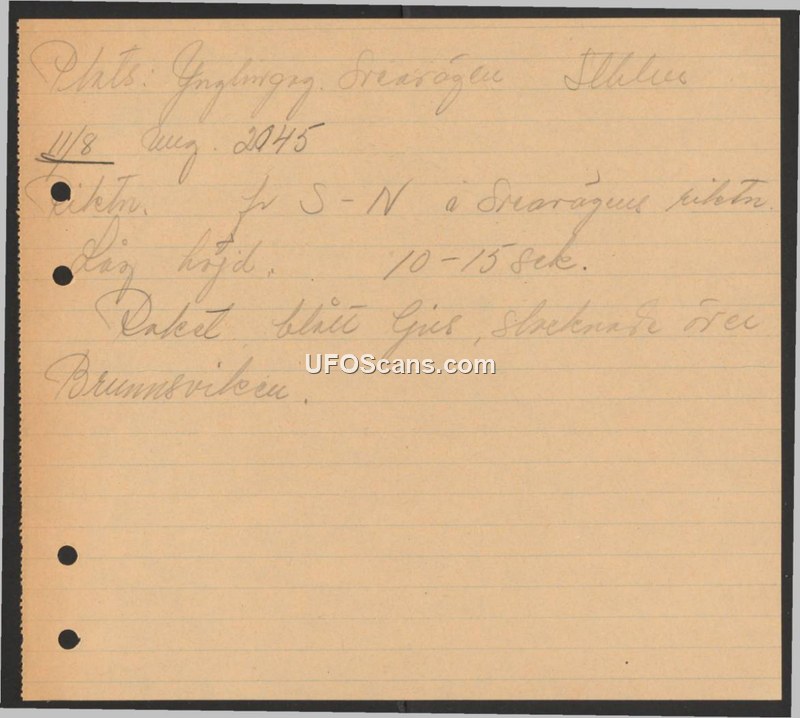 Plats: Ynglingag. Sveavägen Sthlm
11/8 Aug. 2045
Riktn. fr S-N i Sveavägens riktn.
Låg höjd. 10-15 sek.
Raket blått ljus, slocknade över
UFOScans.com
Brunnsviken.